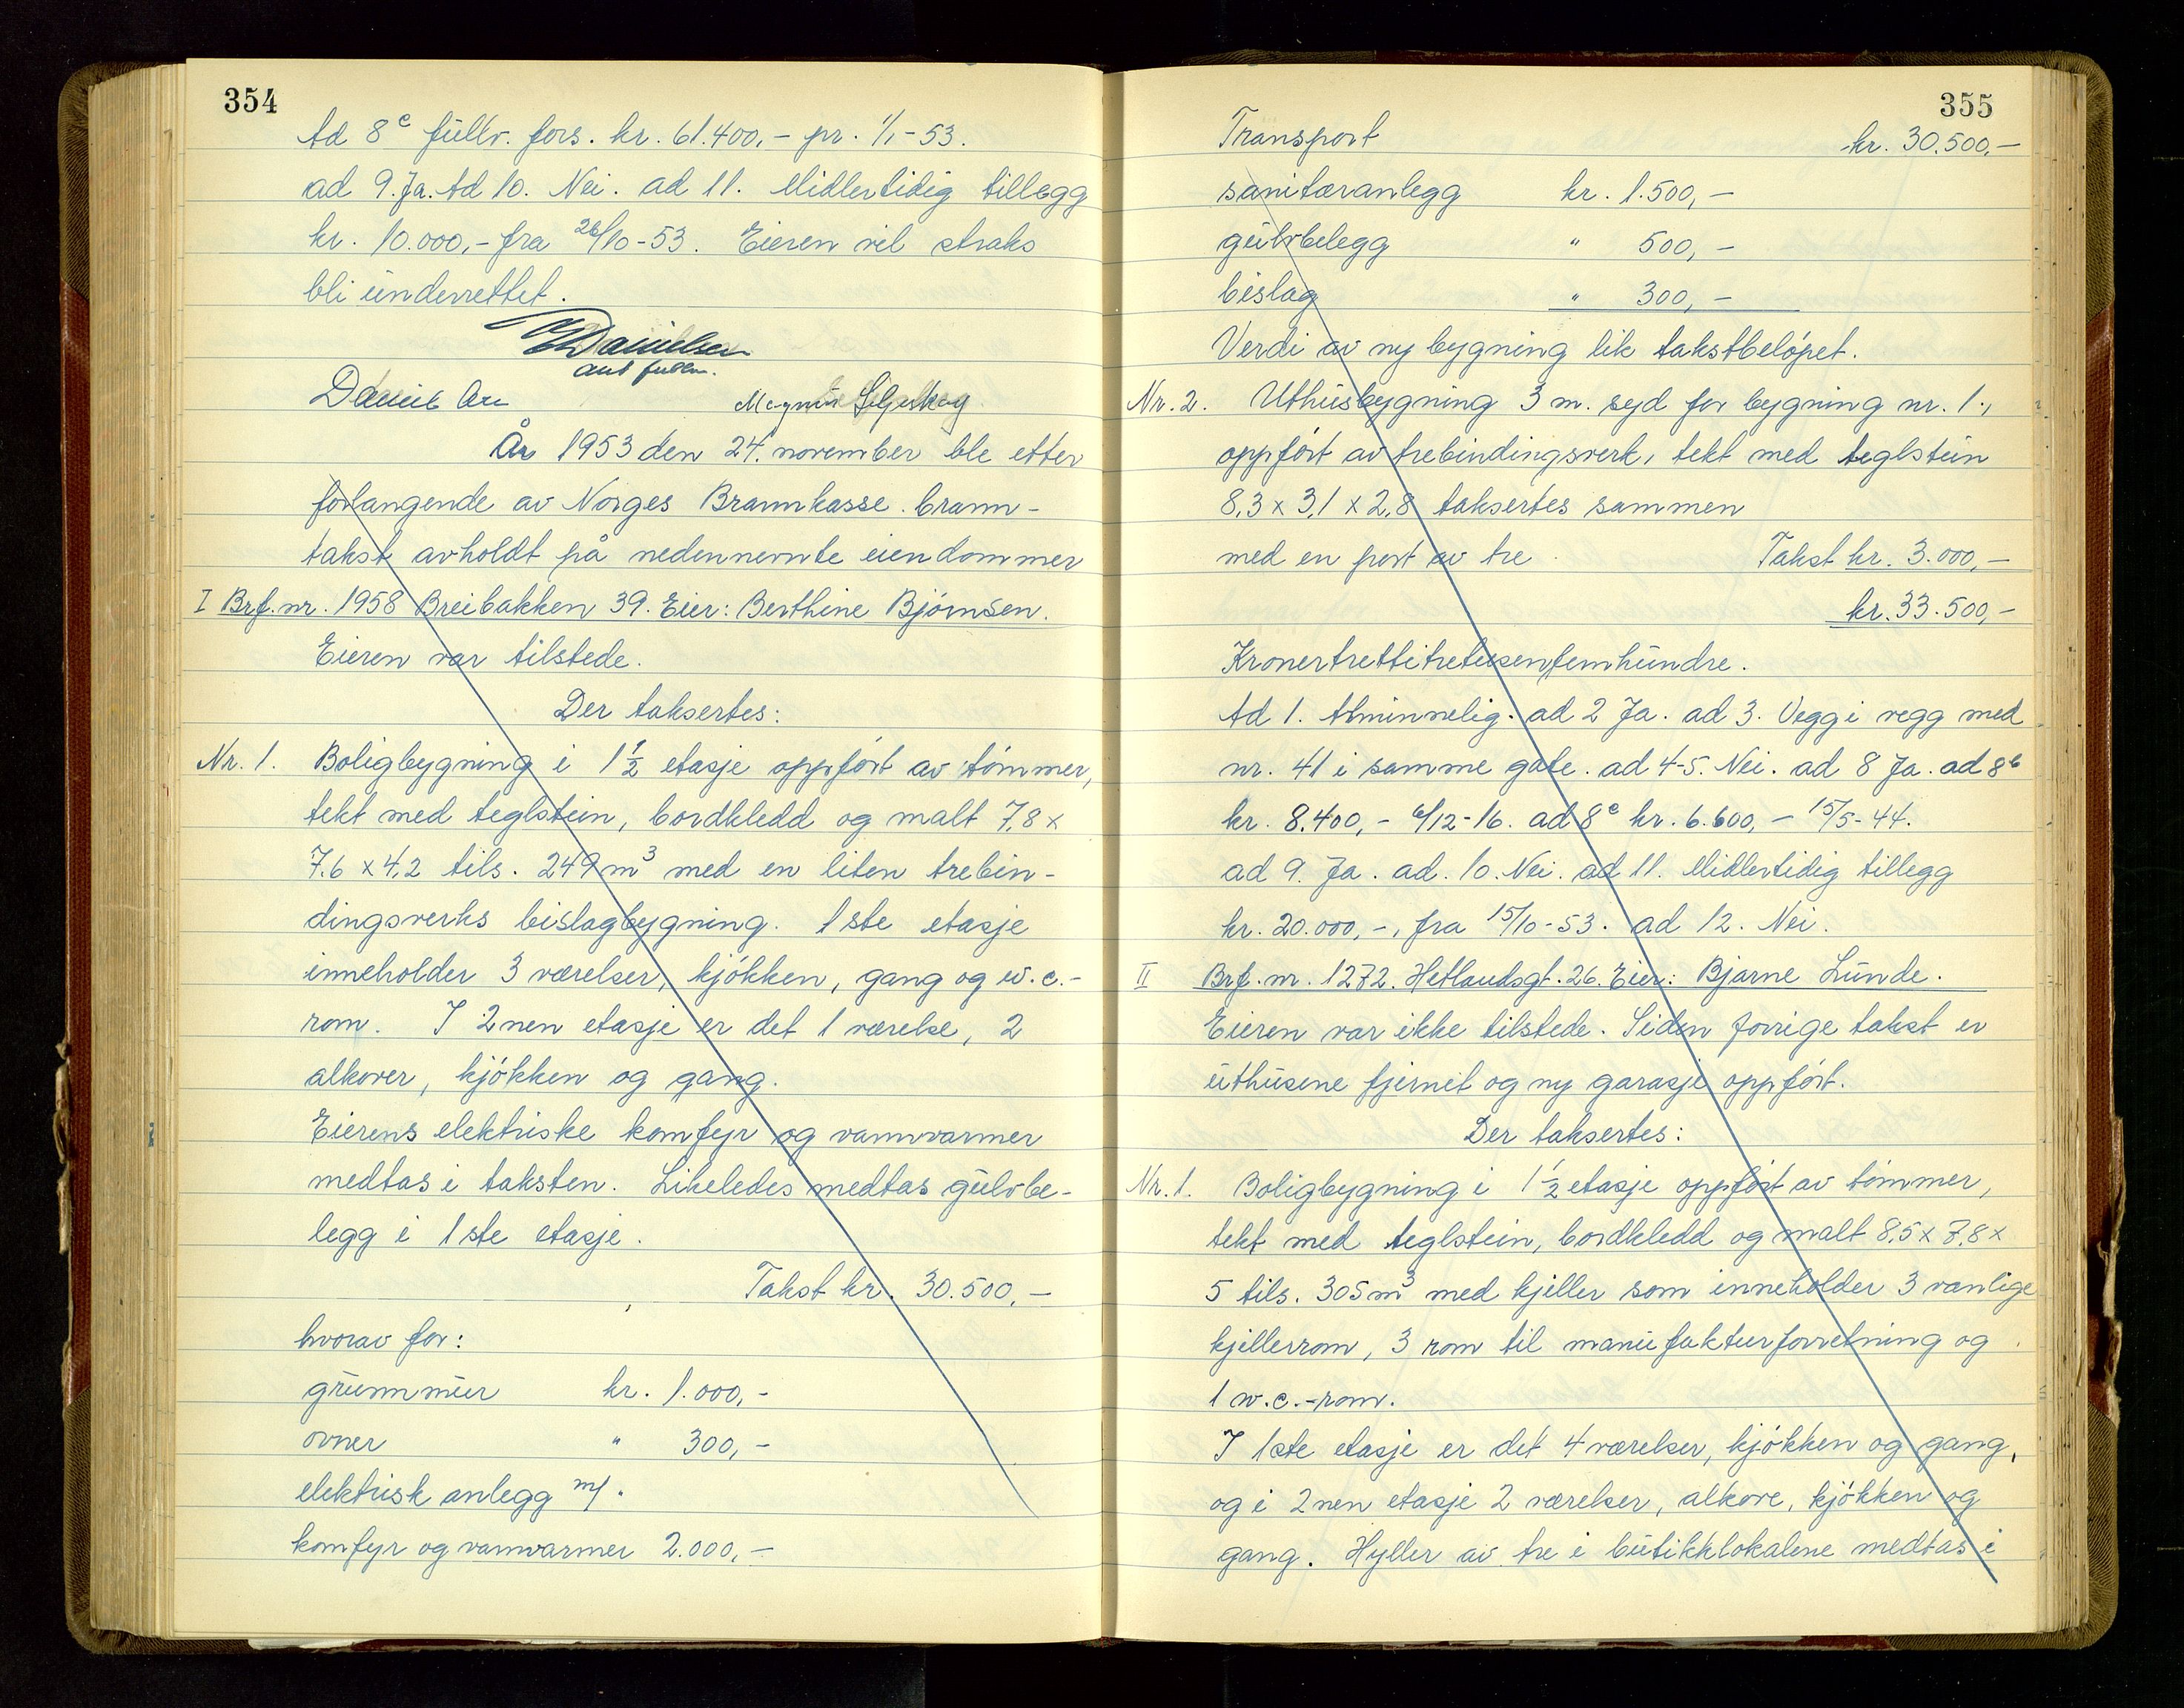 354
Ad 8c fullv. fors. kr. 61.400,- pr. 1/1-53.
ad 9. Ja. Ad 10. Nei. ad 11. Midlertidig tillegg
kr. 10.000,- fra 26/10-53. Eieren vil straks
bli underrettet.
Danielsen
aut fullm.
Magnus
År 1953 den 24. november ble etter
forlangende av Norges Brannkasse. brann-
takst avholdt på nedennevnte eiendommer
I Brf. nr. 1958 Breibakken 39. Eier: Berthine Bjørnsen.
Eieren var tilstede.
Der taksertes:
Nr. 1. Boligbygning i 1 1/2 etasje oppført av tømmer,
tekt med teglstein, bordkledd og malt 7,8 x
7.6 x 4,2 tils. 249 m3 med en liten trebin-
dingsverks bislagbygning. 1ste etasje
inneholder 3 værelser, kjøkken, gang og w.c.-
rom. I 2nen etasje er det 1 værelse, 2
alkover, kjøkken og gang.
Eierens elektriske komfyr og vannvarmer
medtas i taksten. Likeledes medtas gulvbe-
legg i 1ste etasje.
Takst kr. 30.500,-
hvorav for:
grunnmur kr. 1.000,-
ovner " 300,-
elektrisk anlegg m/.
komfyr og vannvarmer 2.000,-
355
Transport kr. 30.500,-
sanitæranlegg kr. 1.500,-
gulvbelegg " 500,-
bislag " 300,-
Verdi av ny bygning lik takstbeløpet.
Nr. 2. Uthusbygning 3 m. syd for bygning nr. 1.,
oppført av trebindingsverk, tekt med teglstein
8,3 x 3,1 x 2,8 taksertes sammen
med en port av tre. Takst kr. 3.000,-
kr. 33.500,-
Kronertrettitretusenfemhundre.
Ad 1. Alminnelig. ad 2 Ja. ad 3. Vegg i vegg med
nr. 41 i samme gate. ad 4-5. Nei. ad 8 Ja. ad 8b
kr. 8.400,- 6/12-16. ad 8c kr. 6.600,- 15/5-44.
ad 9. Ja. ad. 10. Nei. ad 11. Midlertidig tillegg
kr. 20.000,-, fra 15/10-53. ad 12. Nei.
II Brf. nr. 1272. Hetlandsgt. 26. Eier: Bjarne Lunde.
Eieren var ikke tilstede. Siden forrige takst er
uthusene fjernet og ny garasje oppført.
Der taksertes:
Nr. 1. Boligbygning i 1 1/2 etasje oppført av tømmer,
tekt med teglstein, bordkledd og malt 8,5 x 7,8 x
5 tils. 305 m3 med kjeller som inneholder 3 vanlige
kjellerrom, 3 rom til manufakturforretning og
1 w.c.-rom.
I 1ste etasje er det 4 værelser, kjøkken og gang,
og i 2nen etasje 2 værelser, alkove, kjøkken og
gang. Hyller av tre i butikklokalene medtas i